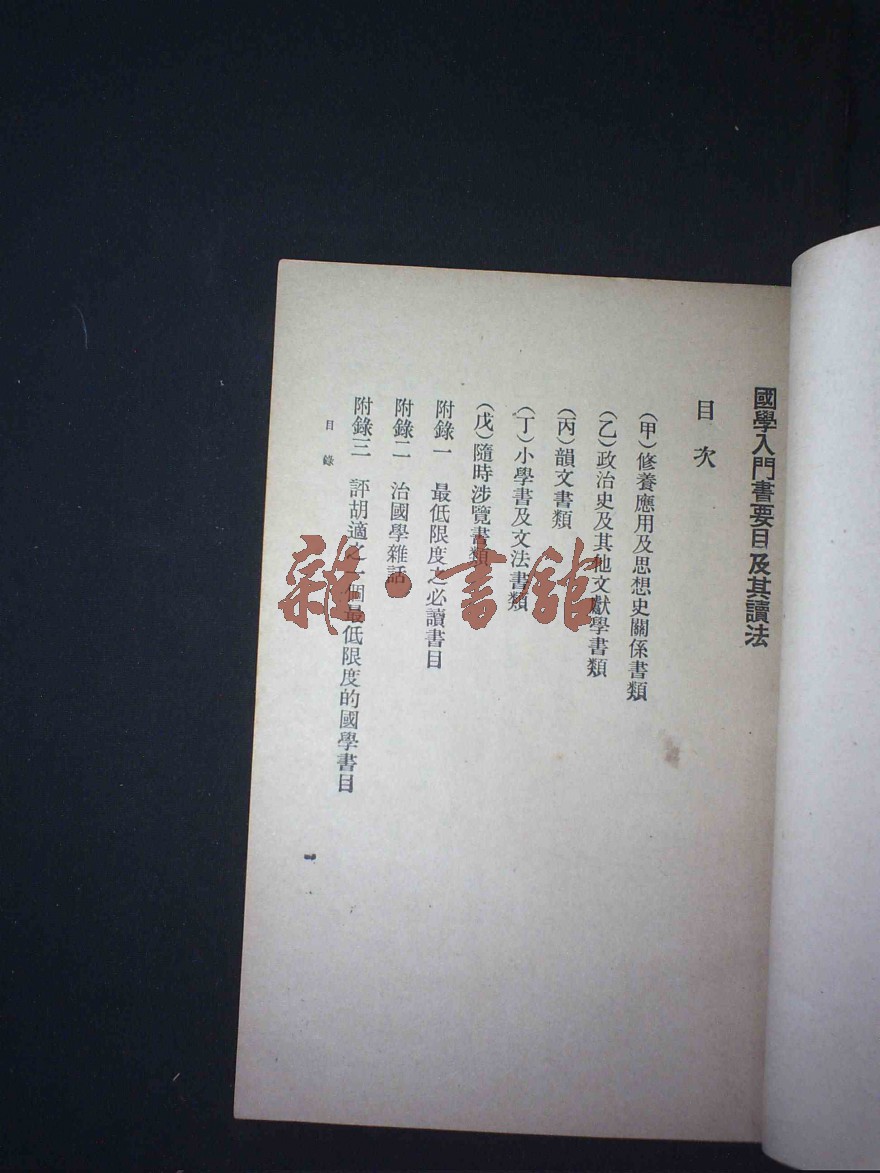 國學入門書要目及其讀法
目次
（甲）修養應用及思想史關係書類
（乙）政治史及其他文獻學書類
（丙）韻文書類
（丁）小學書及文法書類
（戊）隨時涉覽書類
附錄一　最低限度之必讀書目
附錄二　治國學雜話
附錄三　評胡適之一個最低限度的國學書目
目錄
一
雜·書館